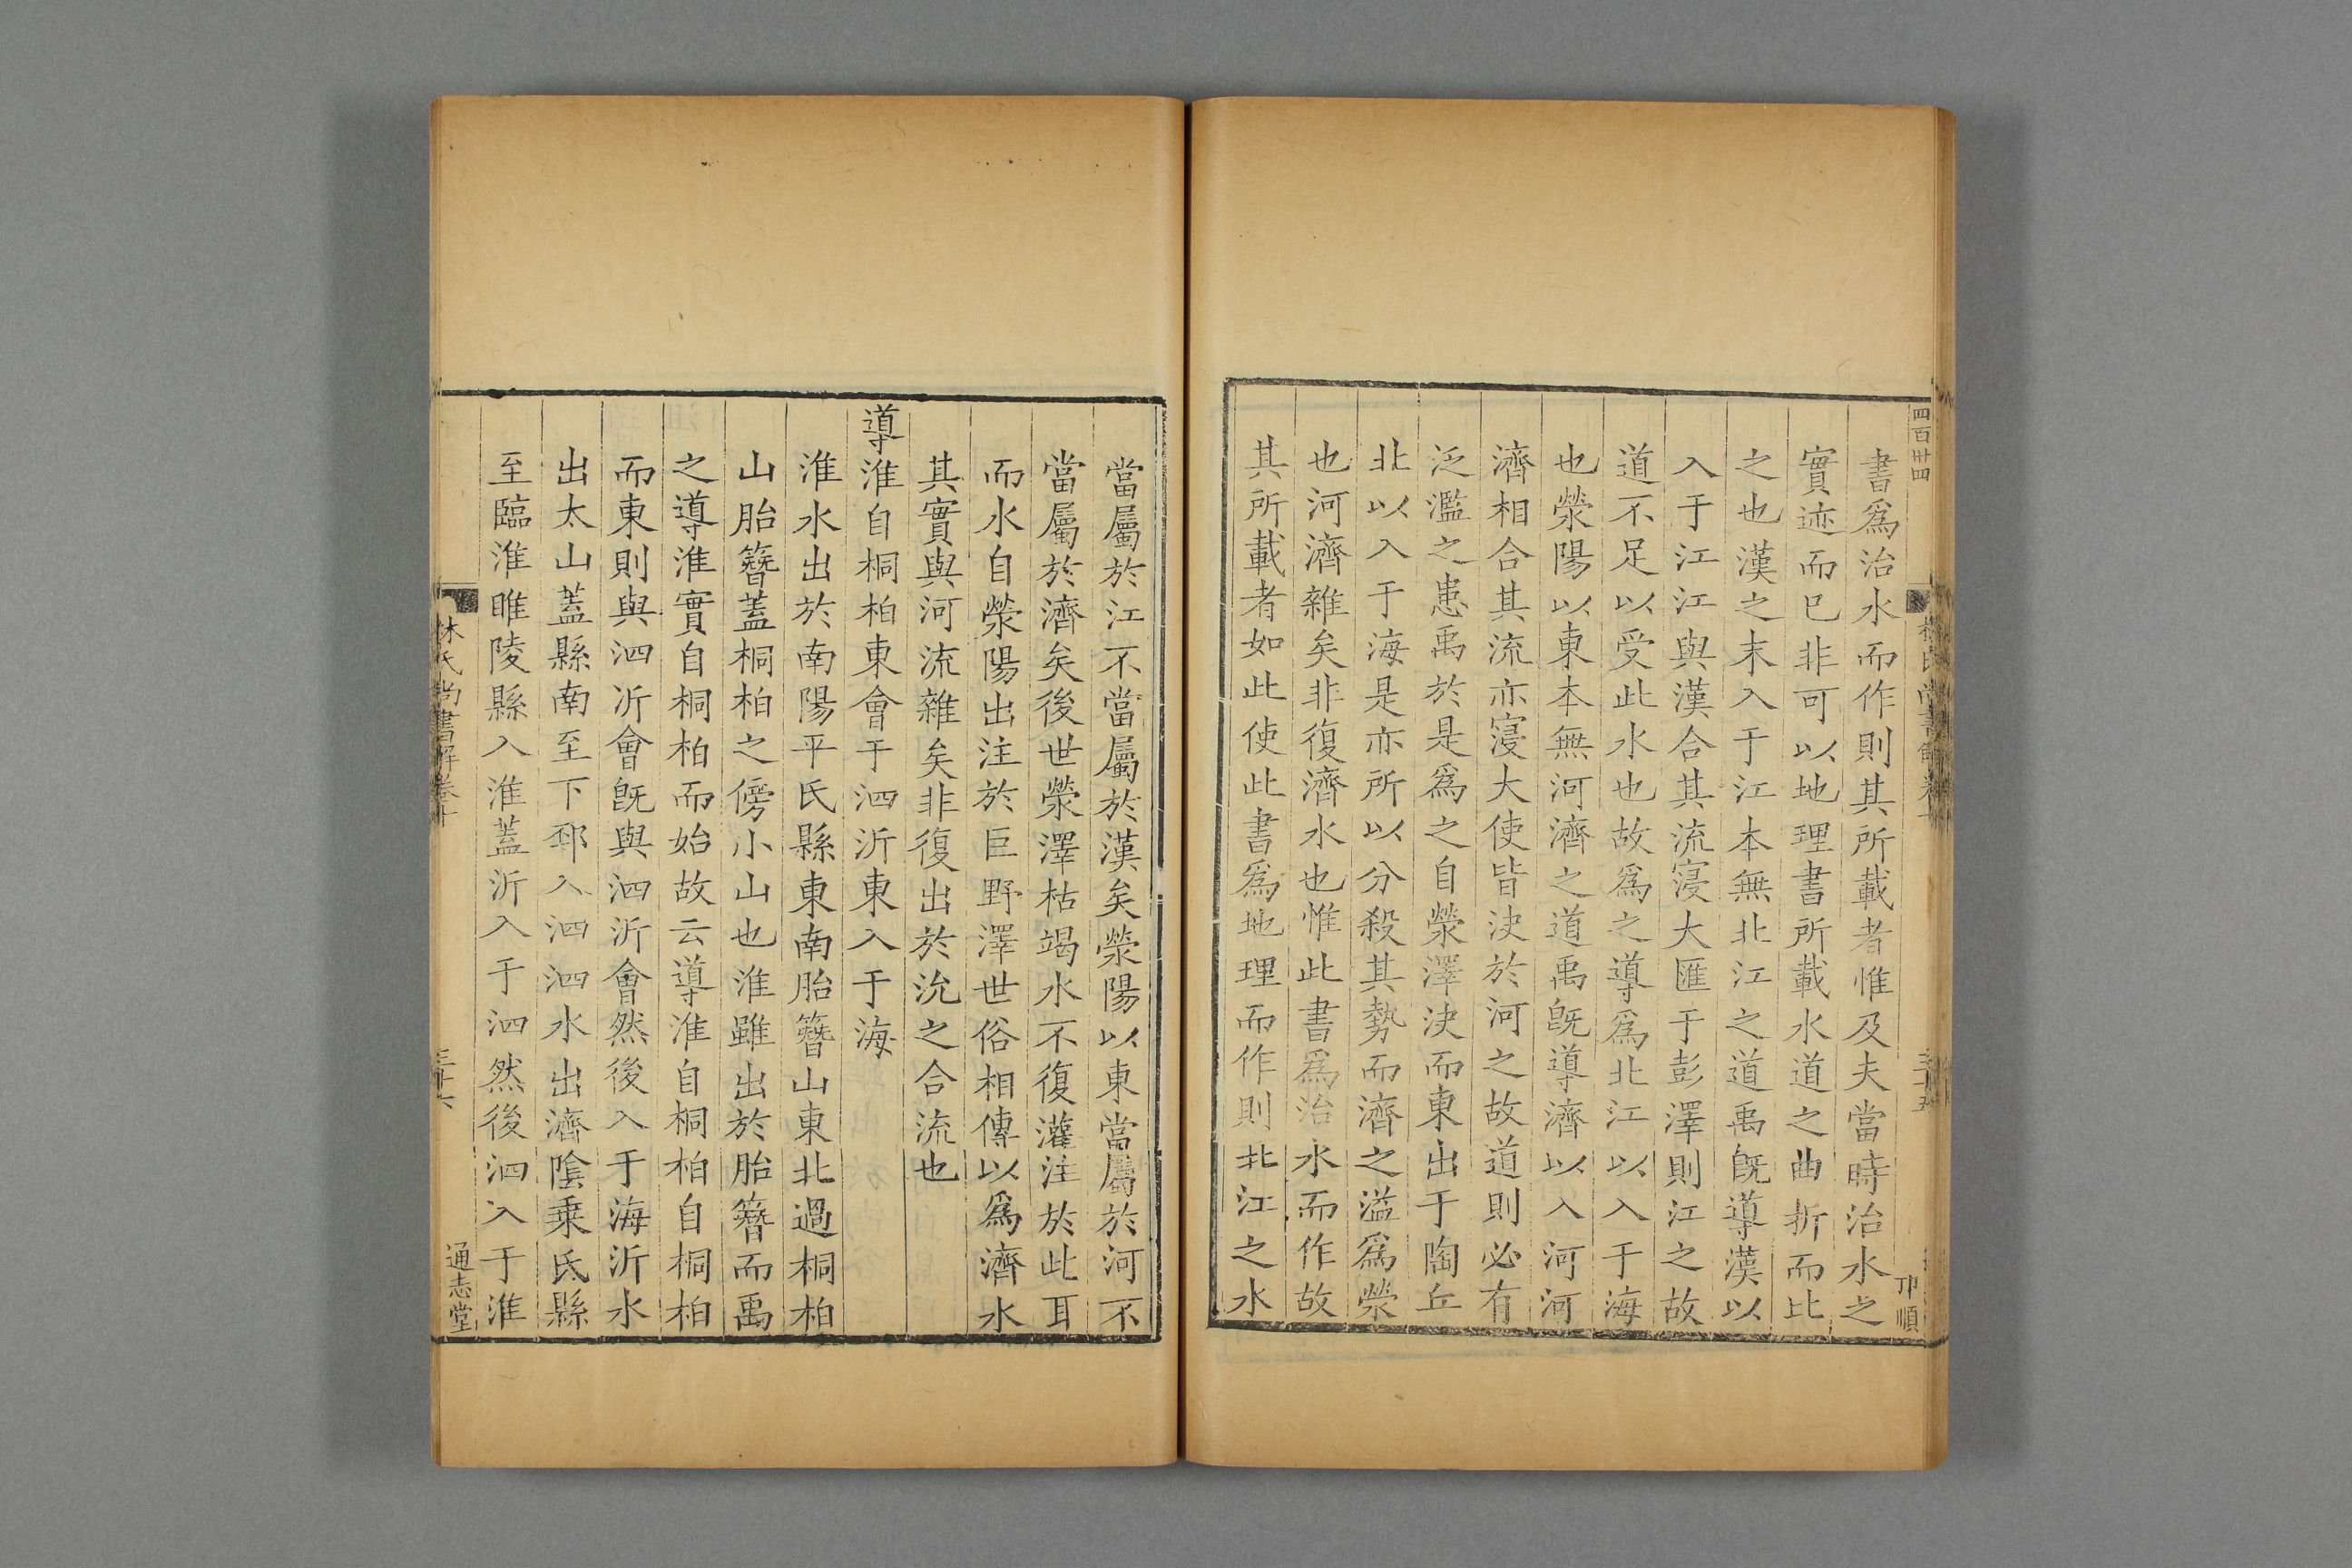 四百卅四
書爲治水而作則其所載者惟及夫當時治水之
實迹而已非可以地理書所載水道之曲折而比
之也漢之末入于江本無北江之道禹旣導漢以
入于江江與漢合其流寖大匯于彭澤則江之故
道不足以受此水也故爲之導爲北江以入于海
也滎陽以東本無河濟之道禹旣導濟以入河河
濟相合其流亦寖大使皆決於河之故道則必有
泛濫之患禹於是爲之自滎澤決而東出于陶丘
北以入于海是亦所以分殺其勢而濟之溢爲滎
也河濟雜矣非復濟水也惟此書爲治水而作故
其所載者如此使此書爲地理而作則北江之水
當屬於江不當屬於漢矣滎陽以東當屬於河不
當屬於濟矣後世滎澤枯竭水不復灌注於此耳
而水自滎陽出注於巨野澤世俗相傳以爲濟水
其實與河流雜矣非復出於沇之合流也
導淮自桐柏東會于泗沂東入于海
淮水出於南陽平氏縣東南胎簪山東北過桐柏
山胎簪蓋桐柏之傍小山也淮雖出於胎簪而禹
之導淮實自桐柏而始故云導淮自桐柏自桐柏
而東則與泗沂會旣與泗沂會然後入于海沂水
出太山蓋縣南至下邳入泗泗水出濟陰乗氏縣
至臨淮睢陵縣入淮蓋沂入于泗然後泗入于淮
林氏尚書解卷十
三十六
通志堂